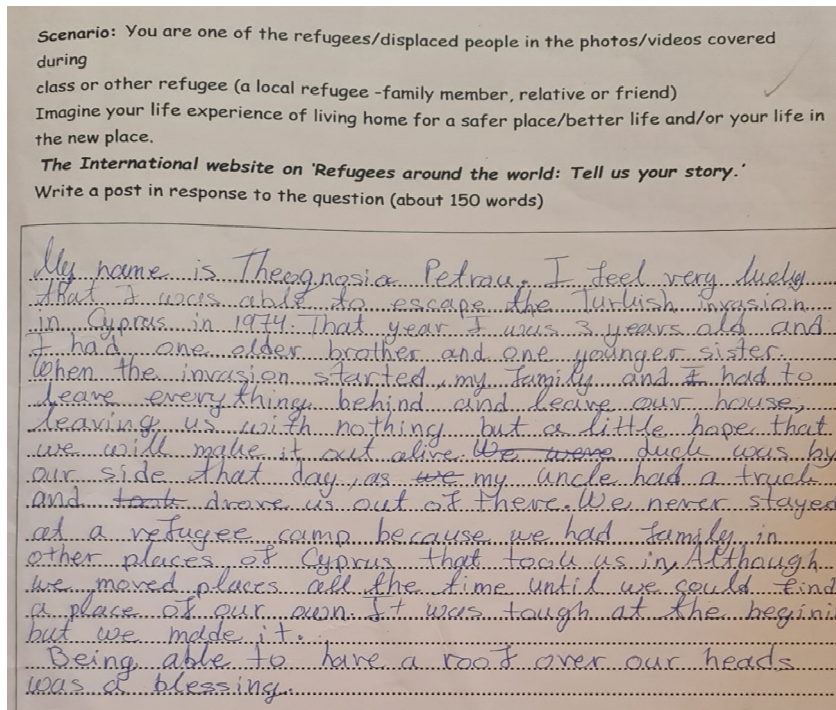 Scenario: You are one of the refugees/displaced people in the photos/videos covered
during
class or other refugee (a local refugee -family member, relative or friend)
Imagine your life experience of living home for a safer place/better life and/or your life in
the new place.
The International website on 'Refugees around the world: Tell us your story.'
Write a post in response to the question (about 150 words)
My name is Theognosia Petrou. I feel very lucky
that I was able to escape the Turkish invasion
in Cyprus in 1974. That year I was 3 years old and
I had one older brother and one younger sister.
When the invasion started, my family and I had to
leave everything behind and leave our house,
leaving us with nothing but a little hope that
we will make it out alive. We were luck was by
our side that day, as we my uncle had a truck
and took drove us out of there. We never stayed
at a refugee camp because we had family in
other places of Cyprus that took us in, Although
we moved places all the time until we could find
a place of our own. It was tough at the begini
but we made it.
Being able to have a roof over our heads
was a blessing.